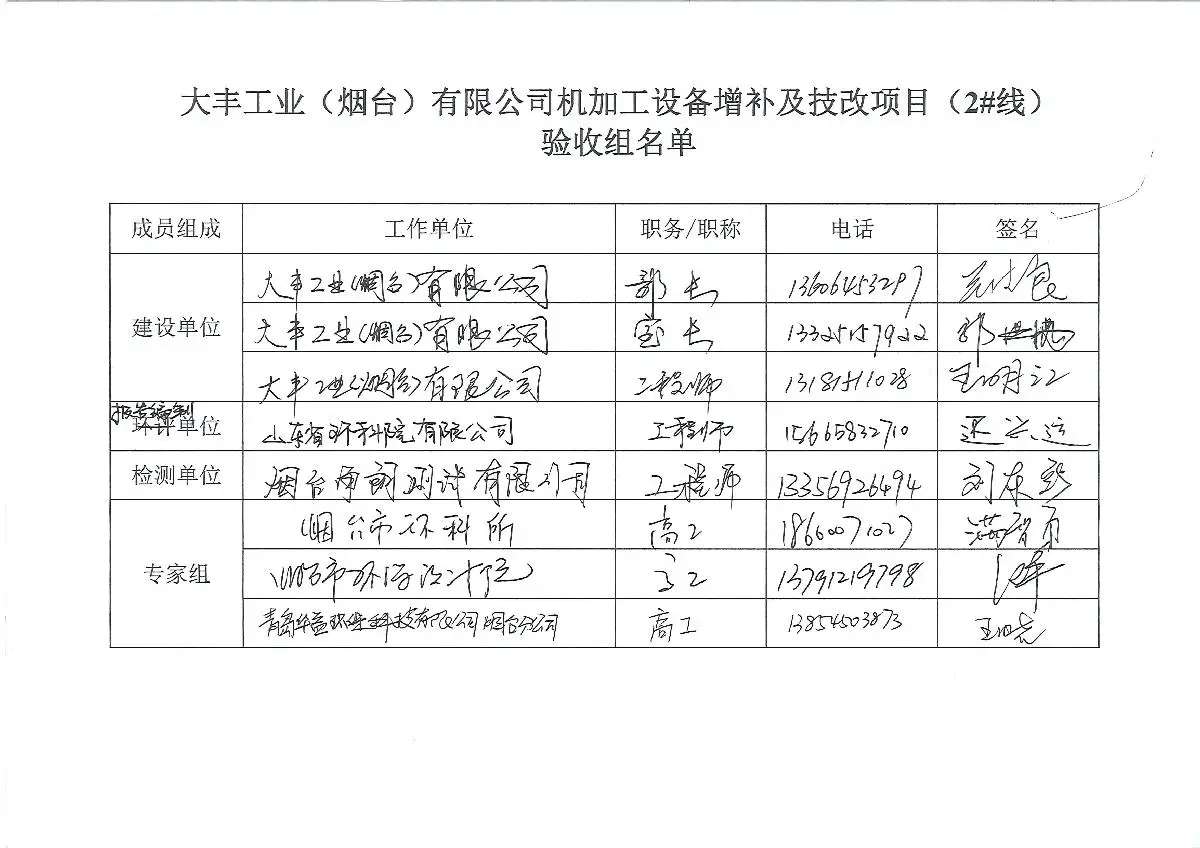 大丰工业（烟台）有限公司机加工设备增补及技改项目（2#线）
验收组名单
成员组成 工作单位 职务/职称 电话 签名
建设单位
大丰工业(烟台)有限公司 部长 13606453297
大丰工业(烟台)有限公司 室长 13325157922
大丰工业(烟台)有限公司 工程师
报告编制
环评单位 山东省环科院有限公司 工程师 15665832710
检测单位 烟台 测试有限公司 工程师 13356926494 刘
专家组
烟台市环科所 高工 18660071027
烟台市环 设计院 高工 13791219798
青岛华益环保科技有限公司烟台分公司 高工 13854503873 王